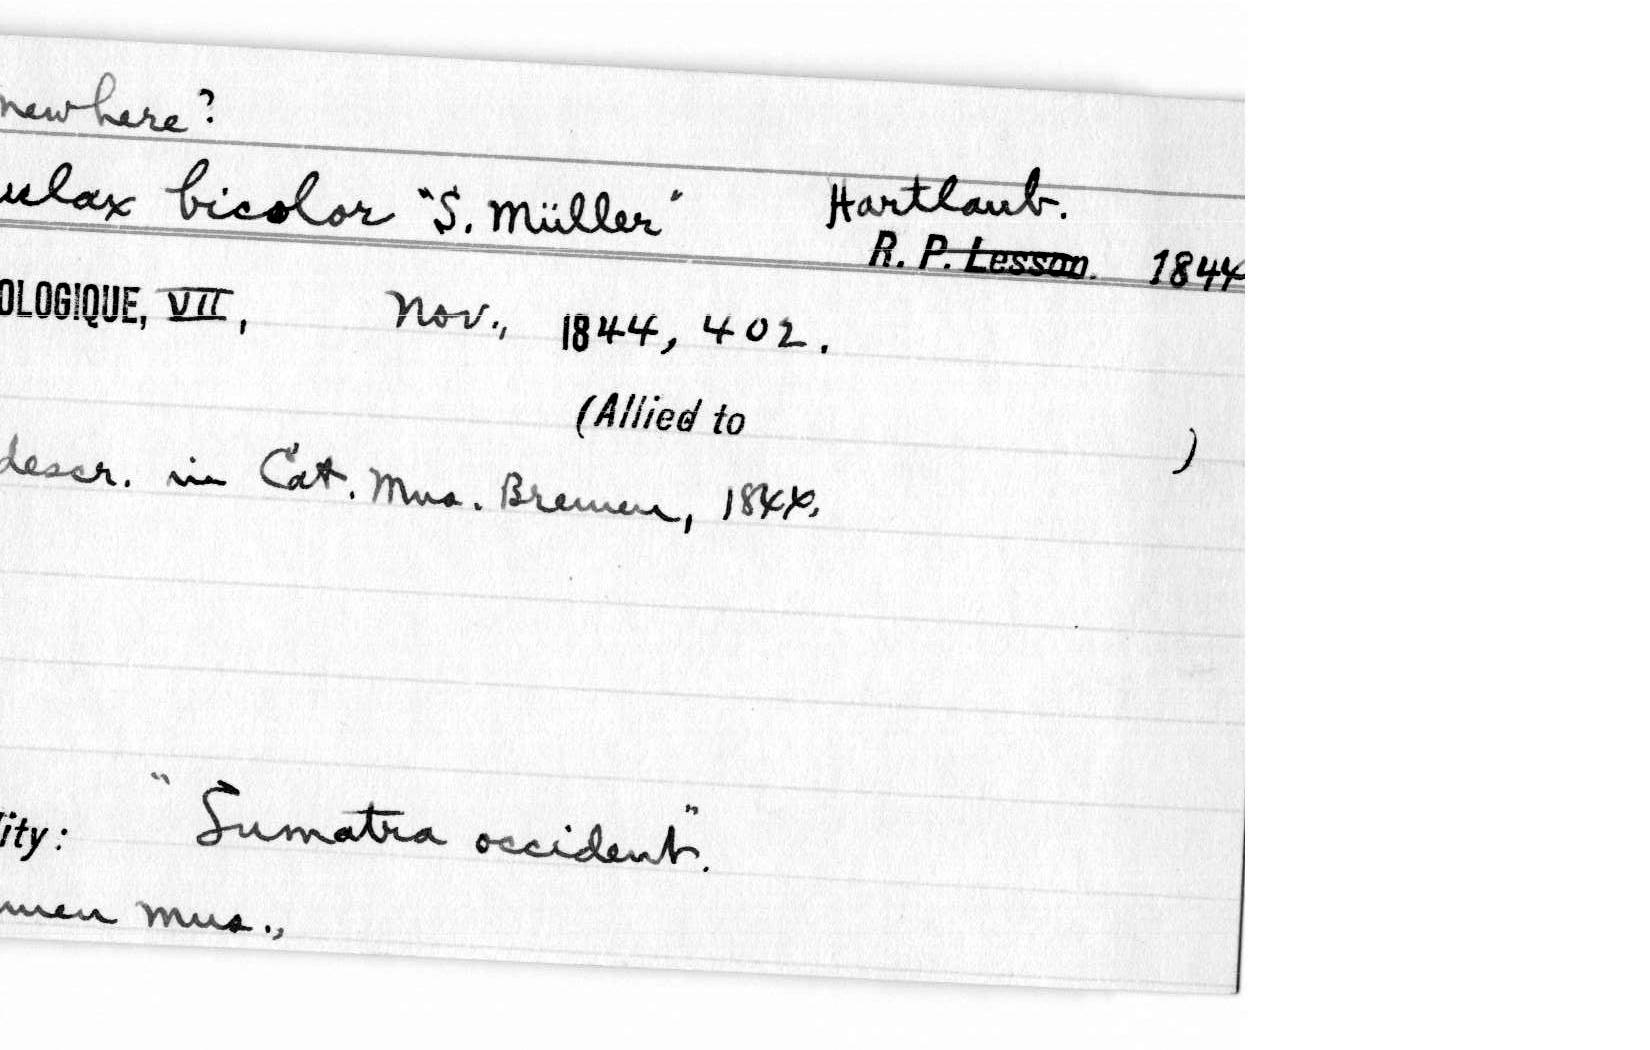 new here?
ulax bicolor "S. Müller" Hartlaub.
R. P. Lesson. 1844
OLOGIQUE, VII, Nov., 1844, 402.
(Allied to )
descr. in Cat. Mus. Bremen, 1844,
lity: "Sumatra occident".
men Mus.,